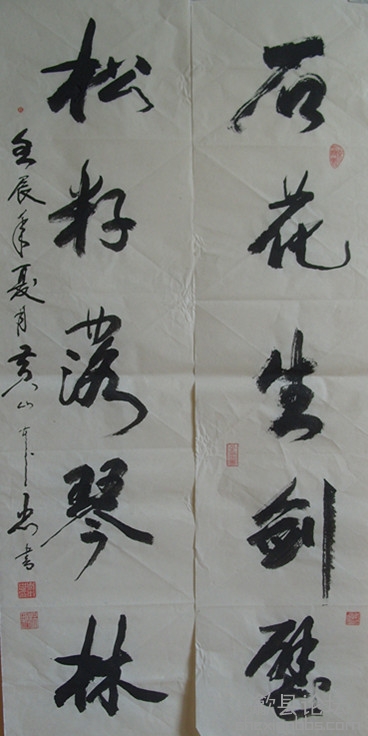 石花生剑壁
松籽落琴林
壬辰年夏月黄山
书